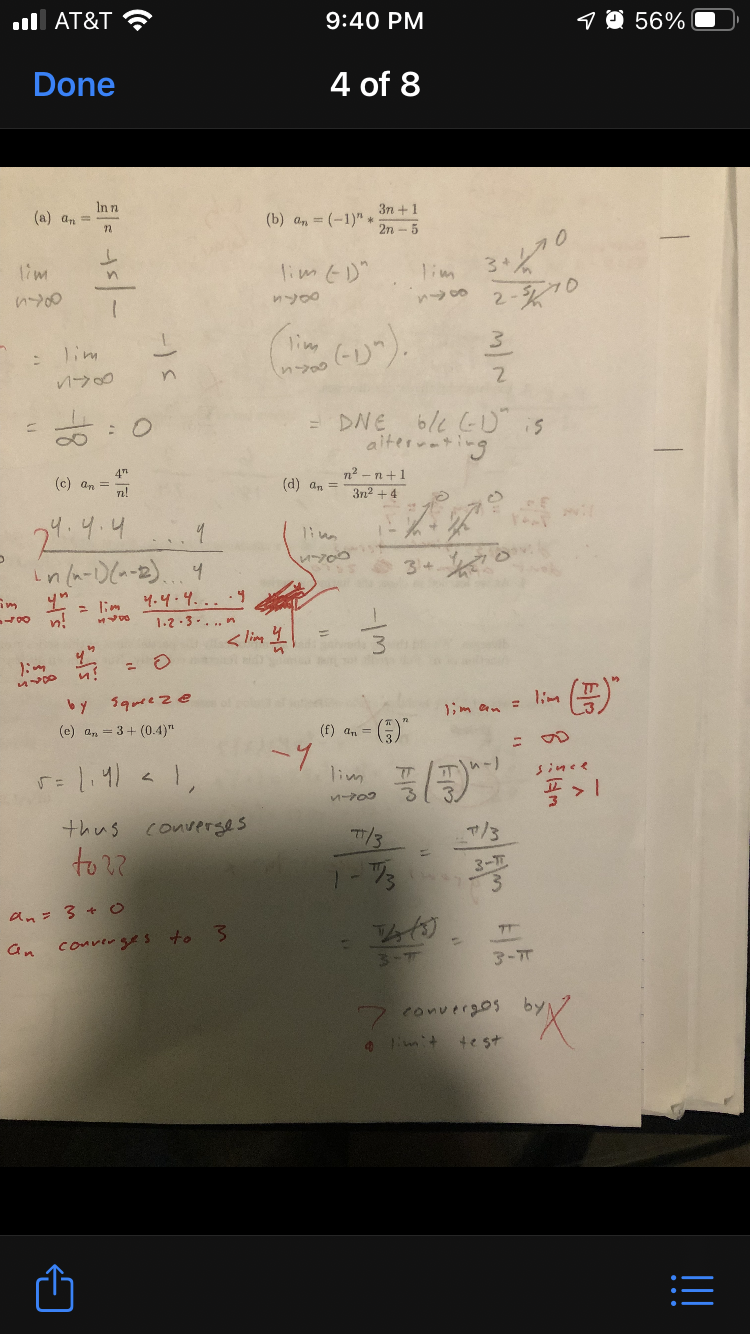 AT&T 9:40 PM 56%
Done 4 of 8
(a) aₙ = ln n / n
lim n→∞ (1/n) / 1
= lim n→∞ 1/n
= 1/∞ = 0
(b) aₙ = (-1)ⁿ * (3n + 1)/(2n − 5)
lim n→∞ (-1)ⁿ · lim n→∞ (3 + 1/n → 0)/(2 - 5/n → 0)
(lim n→∞ (-1)ⁿ) · 3/2
= DNE b/c (-1)ⁿ is
alternating
(c) aₙ = 4ⁿ/n!
4·4·4 ... 4
n(n-1)(n-2)... 4
4ⁿ/n! = lim n→∞ 4·4·4....·4 / 1·2·3·...n
< lim 4/n
lim n→∞ 4ⁿ/n! = 0
by squeeze
(d) aₙ = (n² − n + 1)/(3n² + 4)
lim n→∞ (1 - 1/n → 0 + 1/n² → 0)/(3 + 4/n² → 0)
= 1/3
(e) aₙ = 3 + (0.4)ⁿ
r = |.4| < 1,
thus converges
to??
aₙ = 3 + 0
aₙ converges to 3
(f) aₙ = (π/3)ⁿ
-4
lim aₙ = lim (π/3)ⁿ
= ∞
since
π/3 > 1
lim n→∞ π/3 (π/3)ⁿ⁻¹
(π/3)/(1 - π/3) = (π/3)/((3-π)/3)
= (π/3 (3))/(3-π) = π/(3-π)
? converges by
limit test